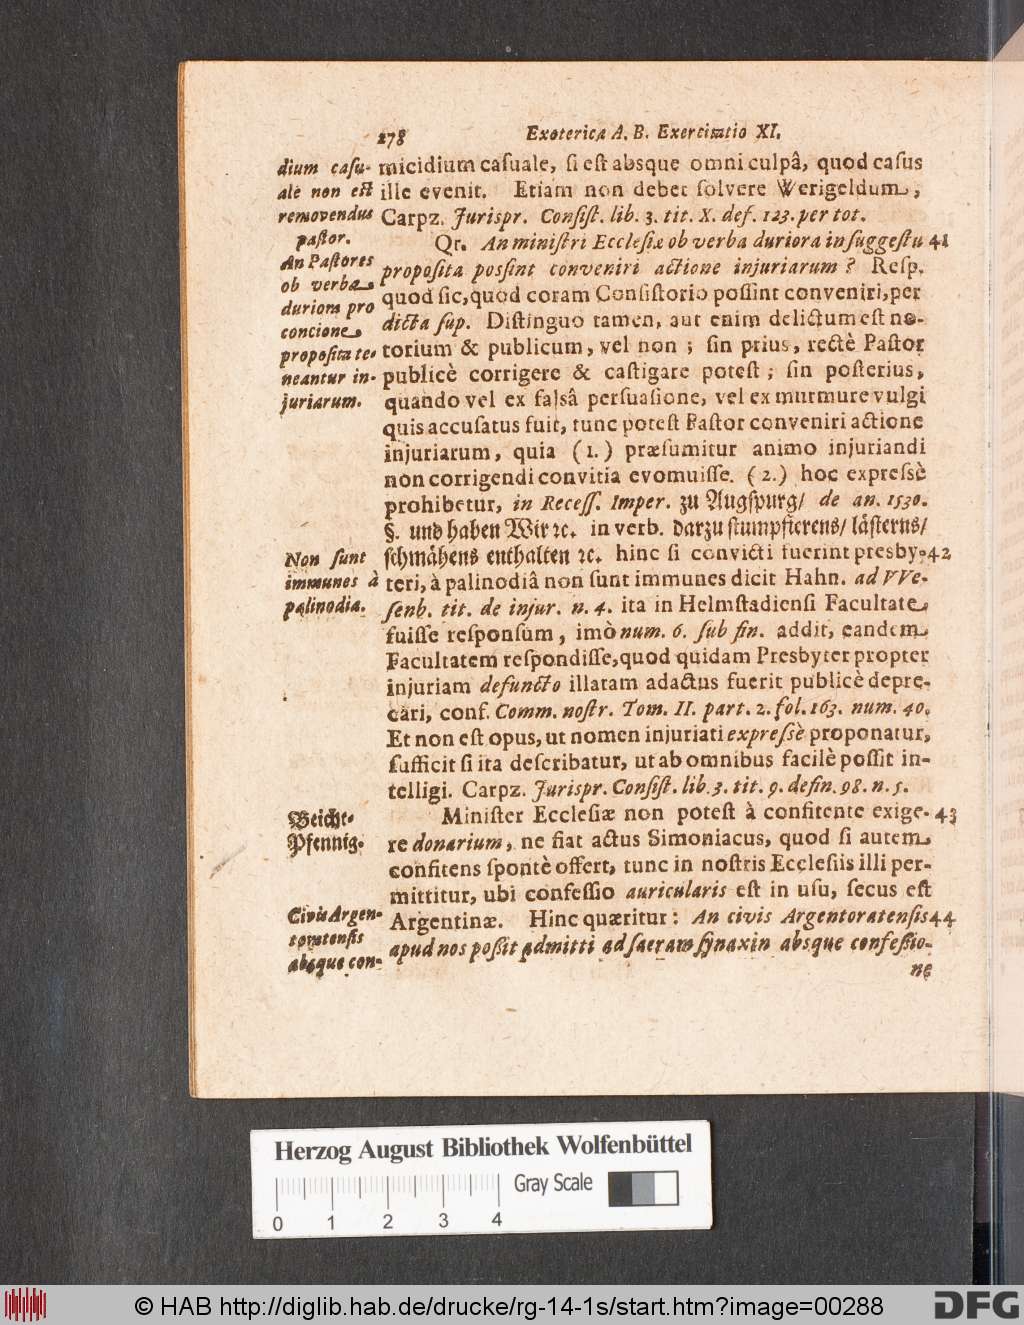 278 Exoterica A. B. Exercitatio XI.
micidium casuale, si est absque omni culpâ, quod casus
ille evenit. Etiam non debet solvere Werigeldum,
Carpz. Jurispr. Consist. lib. 3. tit. X. def. 123. per tot.
Qr. An ministri Ecclesiæ ob verba duriora in suggestu 41
proposita possint conveniri actione injuriarum? Resp.
quod sic, quod coram Consistorio possint conveniri, per
dicta sup. Distinguo tamen, aut enim delictum est no-
torium & publicum, vel non; sin prius, rectè Pastor
publicè corrigere & castigare potest; sin posterius,
quando vel ex falsâ persuasione, vel ex murmure vulgi
quis accusatus fuit, tunc potest Pastor conveniri actione
injuriarum, quia (1.) præsumitur animo injuriandi
non corrigendi convitia evomuisse. (2.) hoc expressè
prohibetur, in Recess. Imper. zu Augspurg/ de an. 1530.
§. und haben Wir ꝛc. in verb. darzu stumpfierens/ lästerns/
schmähens enthalten ꝛc. hinc si convicti fuerint presby- 42
teri, à palinodiâ non sunt immunes dicit Hahn. ad VVe-
senb. tit. de injur. n. 4. ita in Helmstadiensi Facultate
fuisse responsum, imò num. 6. sub fin. addit, eandem
Facultatem respondisse, quod quidam Presbyter propter
injuriam defuncto illatam adactus fuerit publicè depre-
cari, conf. Comm. nostr. Tom. II. part. 2. fol. 163. num. 40.
Et non est opus, ut nomen injuriati expressè proponatur,
sufficit si ita describatur, ut ab omnibus facilè possit in-
telligi. Carpz. Jurispr. Consist. lib. 3. tit. 9. defin. 98. n. 5.
Minister Ecclesiæ non potest à confitente exige- 43
re donarium, ne fiat actus Simoniacus, quod si autem
confitens spontè offert, tunc in nostris Ecclesiis illi per-
mittitur, ubi confessio auricularis est in usu, secus est
Argentinæ. Hinc quæritur: An civis Argentoratensis 44
apud nos possit admitti ad sacram synaxin absque confessio-
ne
dium casu-
ale non est
removendus
pastor.
An Pastores
ob verba
duriora pro
concione
proposita te-
neantur in-
juriarum.
Non sunt
immunes à
palinodia.
Beicht-
Pfennig.
Civis Argen-
toratensis
absque con-
Herzog August Bibliothek Wolfenbüttel
Gray Scale
0 1 2 3 4
© HAB http://diglib.hab.de/drucke/rg-14-1s/start.htm?image=00288
DFG